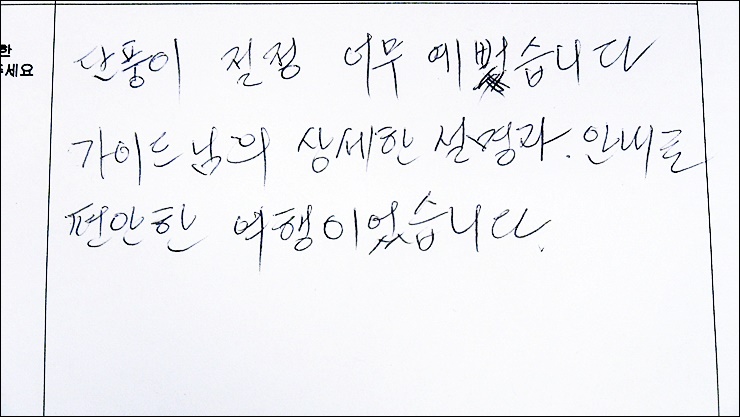 한
주세요
단풍이 절정 너무 예뻤습니다
가이드님의 상세한 설명과. 안내로
편안한 여행이었습니다.